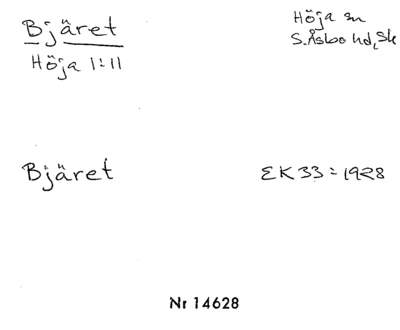 Bjäret
Höja 1:11
Höja sn
S. Åsbo hd, Sk
Bjäret
EK 33 = 1928
Nr 14628